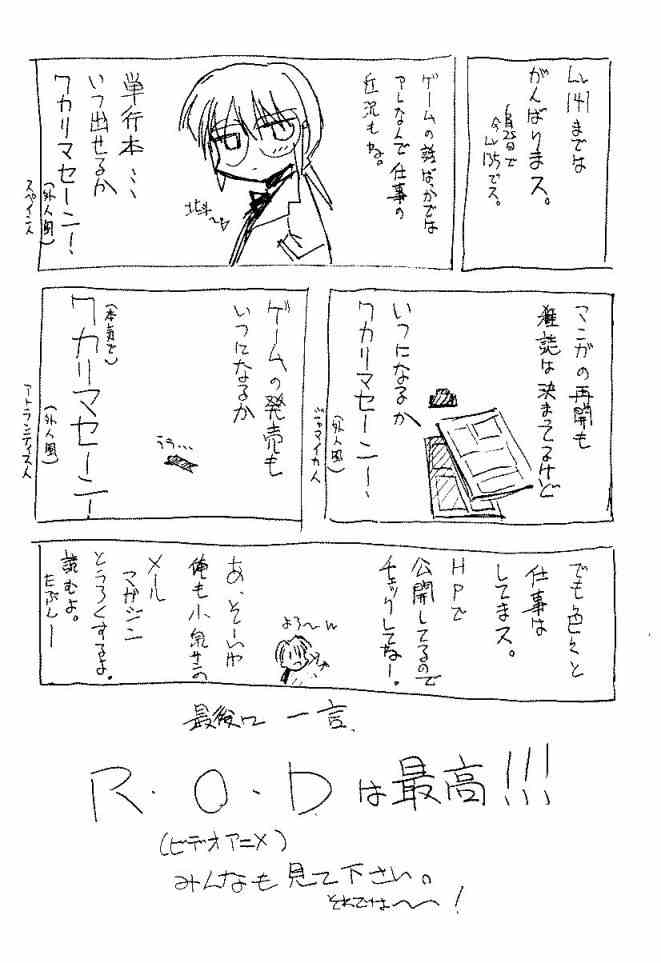 Lv141までは
がんばりまス。
6月25日で
今Lv135でス。
ゲームの話ばっかでは
アレなんで仕事の
近況もね。
単行本…
いつ出せるか
ワカリマセーン!
(外人風)
スペイン人
マンガの再開も
雑誌は決まってるけど
いつになるか
ワカリマセーン!
(外人風)
ジャマイカ人
ゲームの発売も
いつになるか
(本気で)
ワカリマセーン!
(外人風)
アトランティス人
うう…
でも色々と
仕事は
してまス。
HPで
公開してるので
チェックしてねー!
よろ〜ん
あ、そーいや
俺も小泉サンの
メール
マガジン
とうろくするよ。
読むよ。
たぶんー
最後に一言、
R・O・Dは最高!!!
(ビデオアニメ)
みんなも見て下さい。
それでは〜〜!